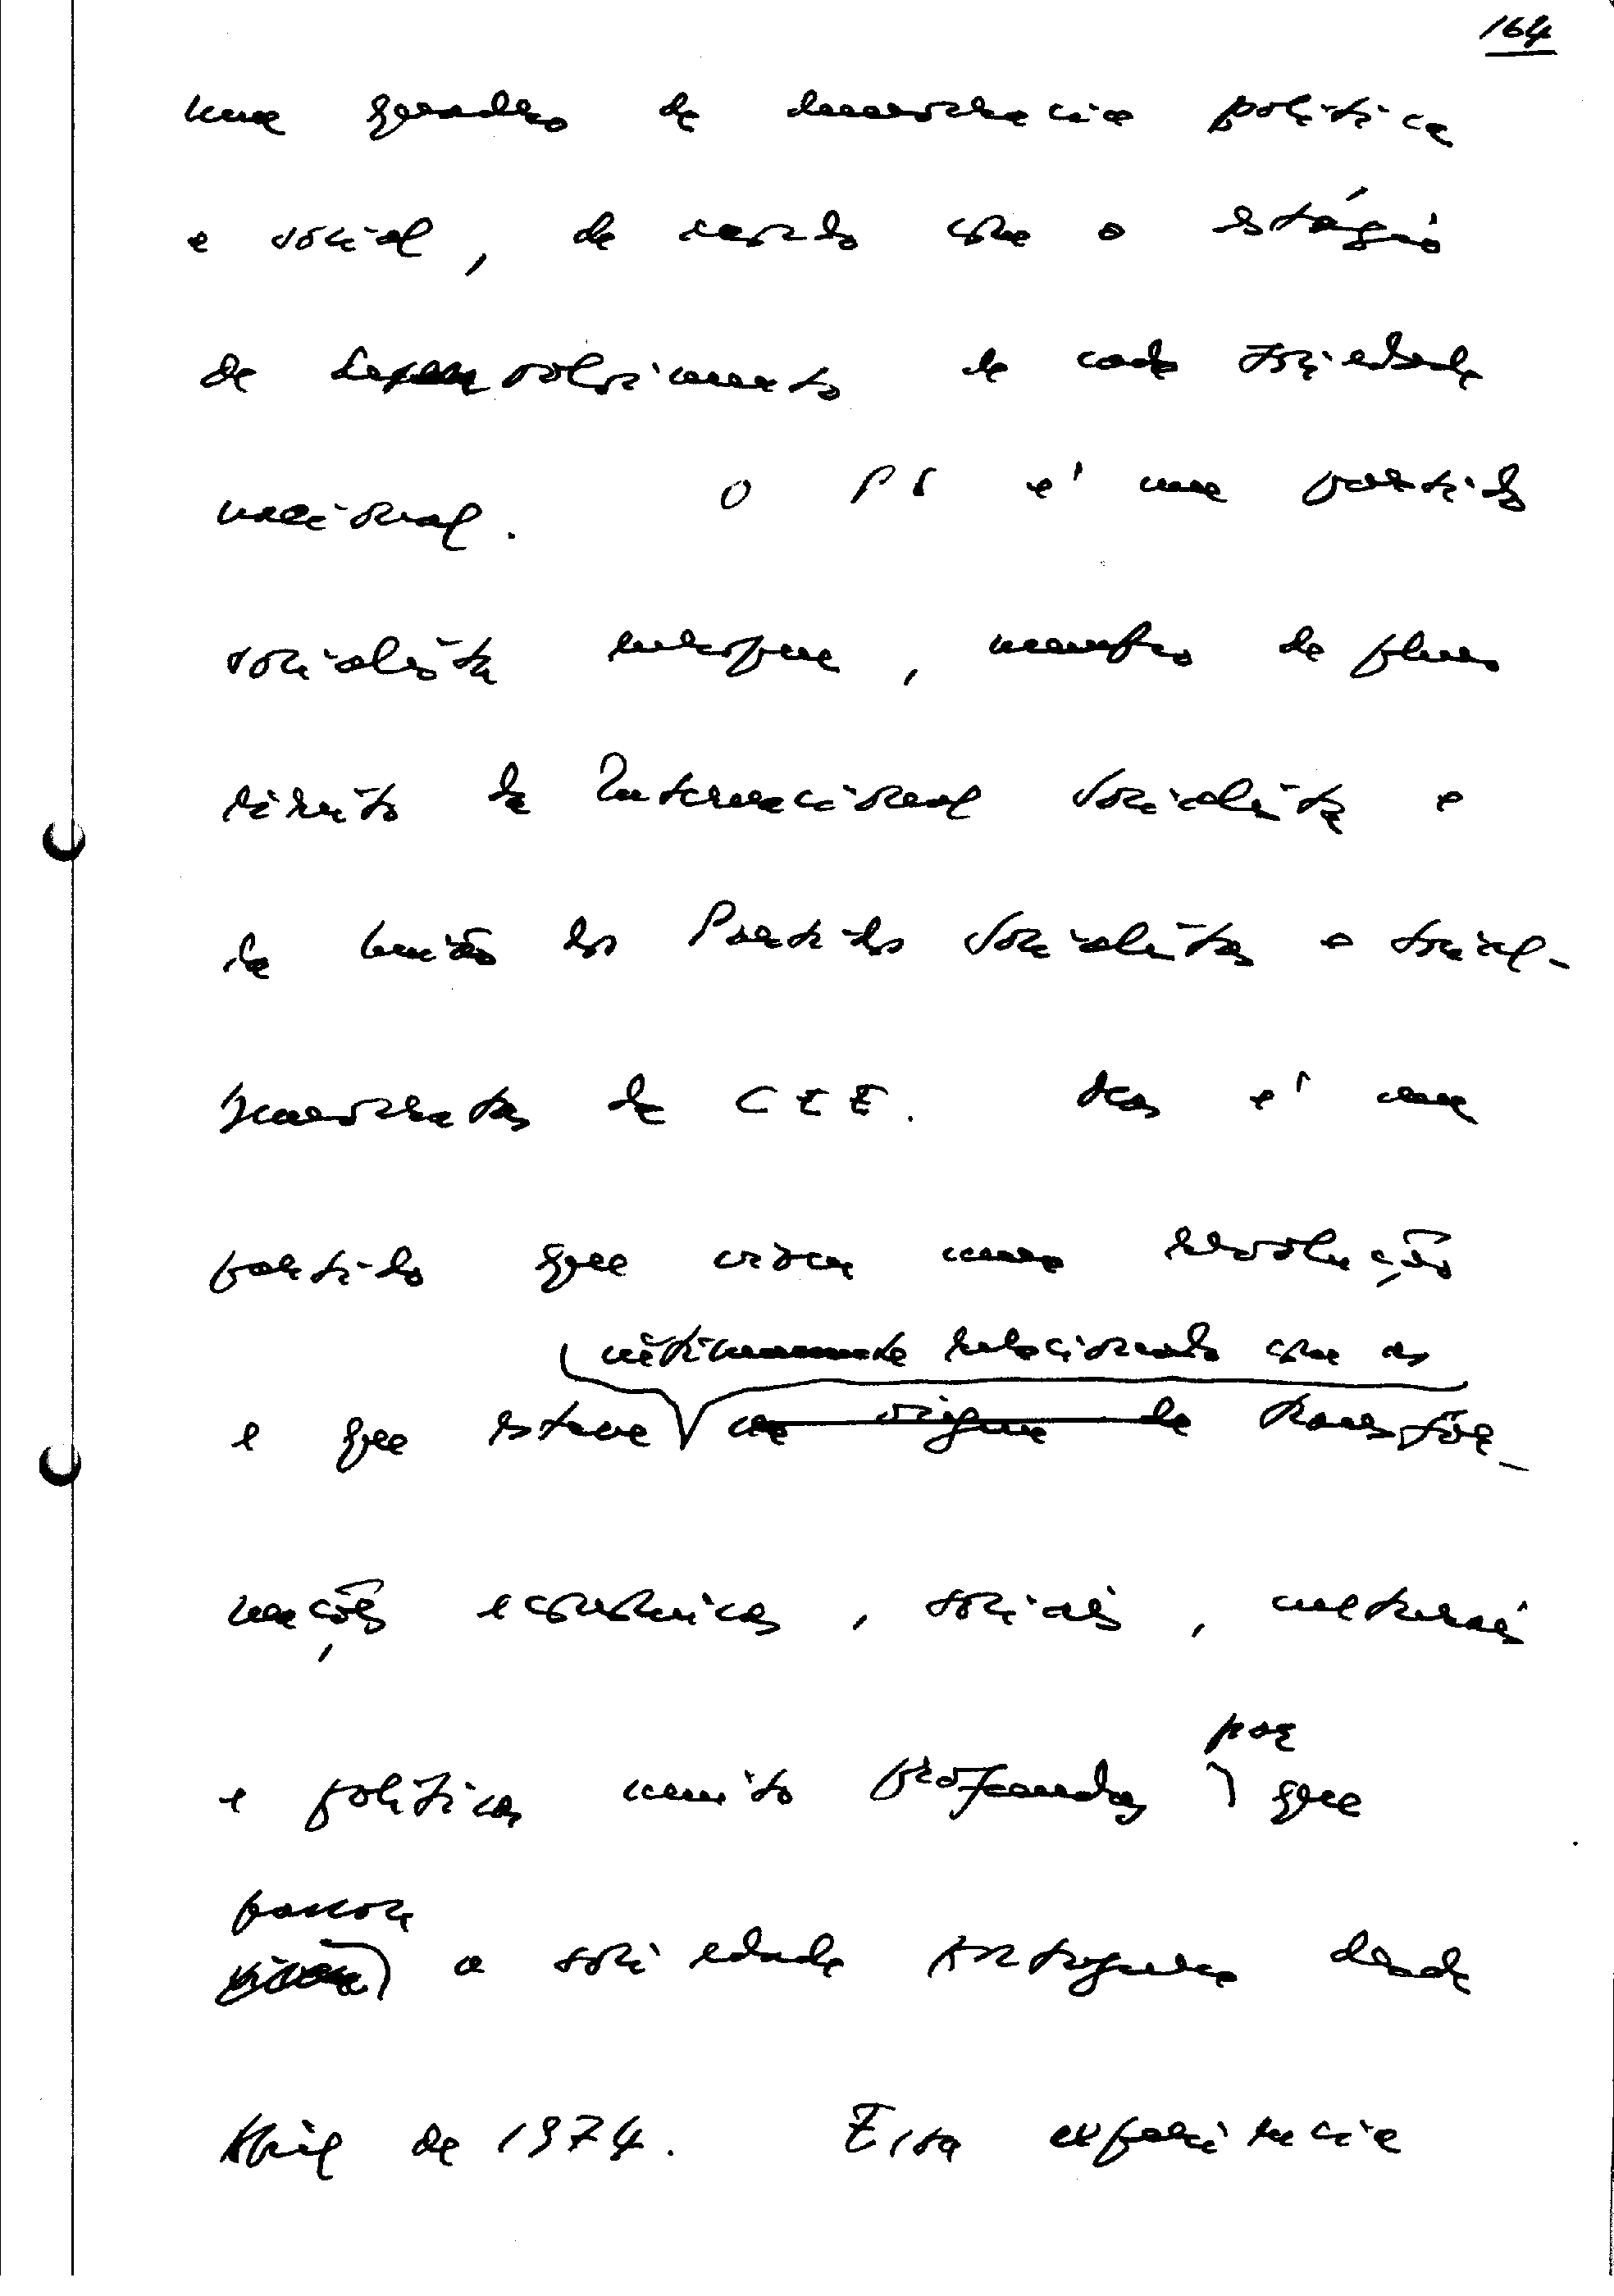 164
num quadro de democracia política
e social, de acordo com o estágio
de desenvolvimento de cada sociedade
nacional. O PS é um partido
socialista europeu, membro de pleno
direito da Internacional Socialista e
da União dos Partidos Socialistas e Social-
Democratas da CEE. Mas é um
partido que viveu uma revolução
intimamente relacionado com as
e que esteve na origem de transfor-
mações económicas, sociais, culturais
por
e políticas muito profundas que
passou
viveu a sociedade portuguesa desde
Abril de 1974. Essa experiência